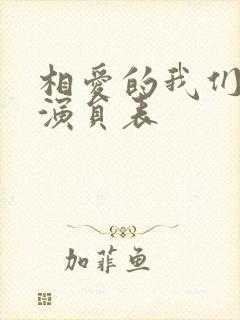 相愛的我们
演員表
加菲鱼